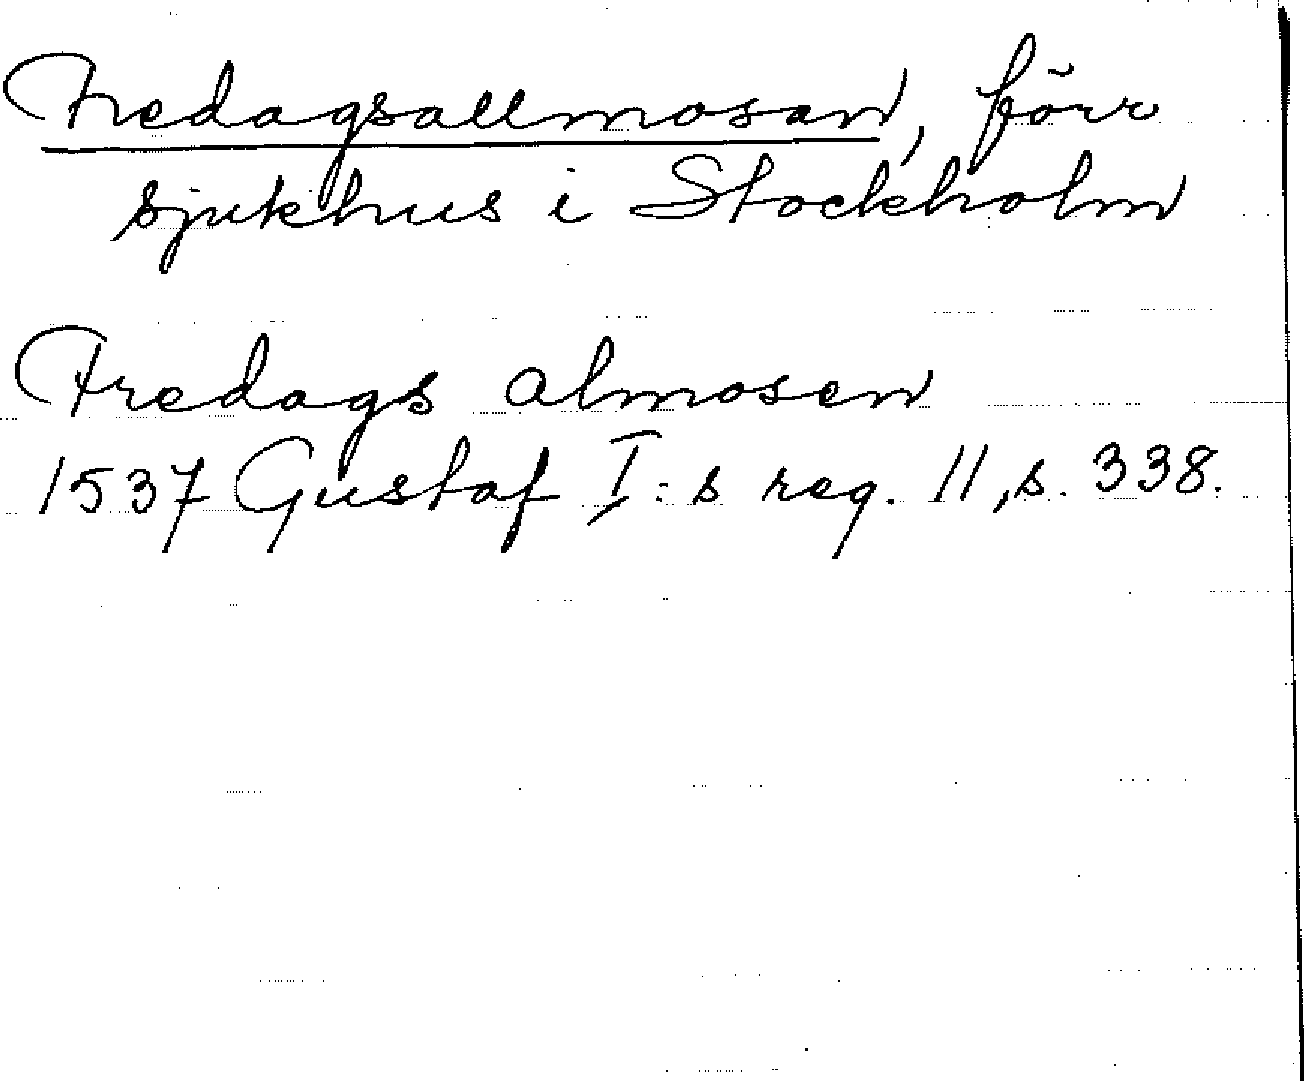 Fredagsallmosan, förr
sjukhus i Stockholm
Fredags almosen
1537 Gustaf I:s reg. 11, s. 338.